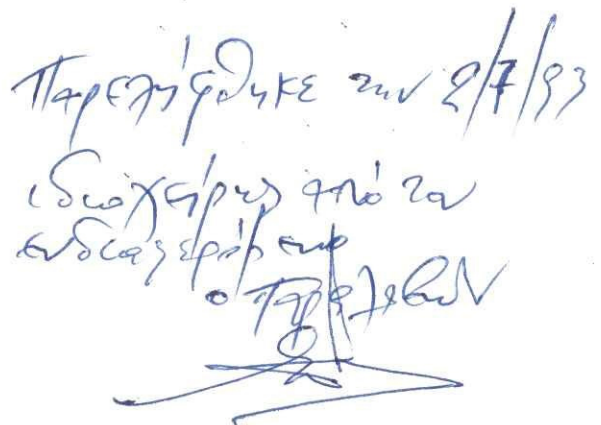 Παρελήφθηκε την 2/7/93
ιδιοχείρως από τον
ενδιαφερόμενο
ο Παραλαβών